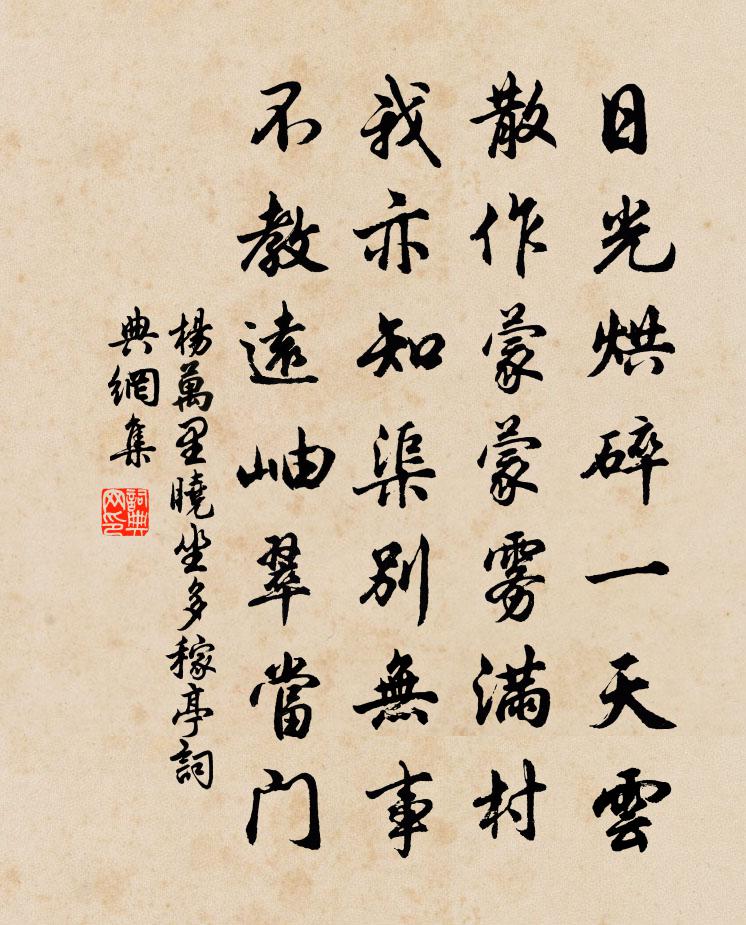 日光烘碎一天雲
散作蒙蒙雾滿村
我亦知渠別無事
不教遠岫翠當门
楊萬里曉坐多稼亭詞
典網集
詞典网印